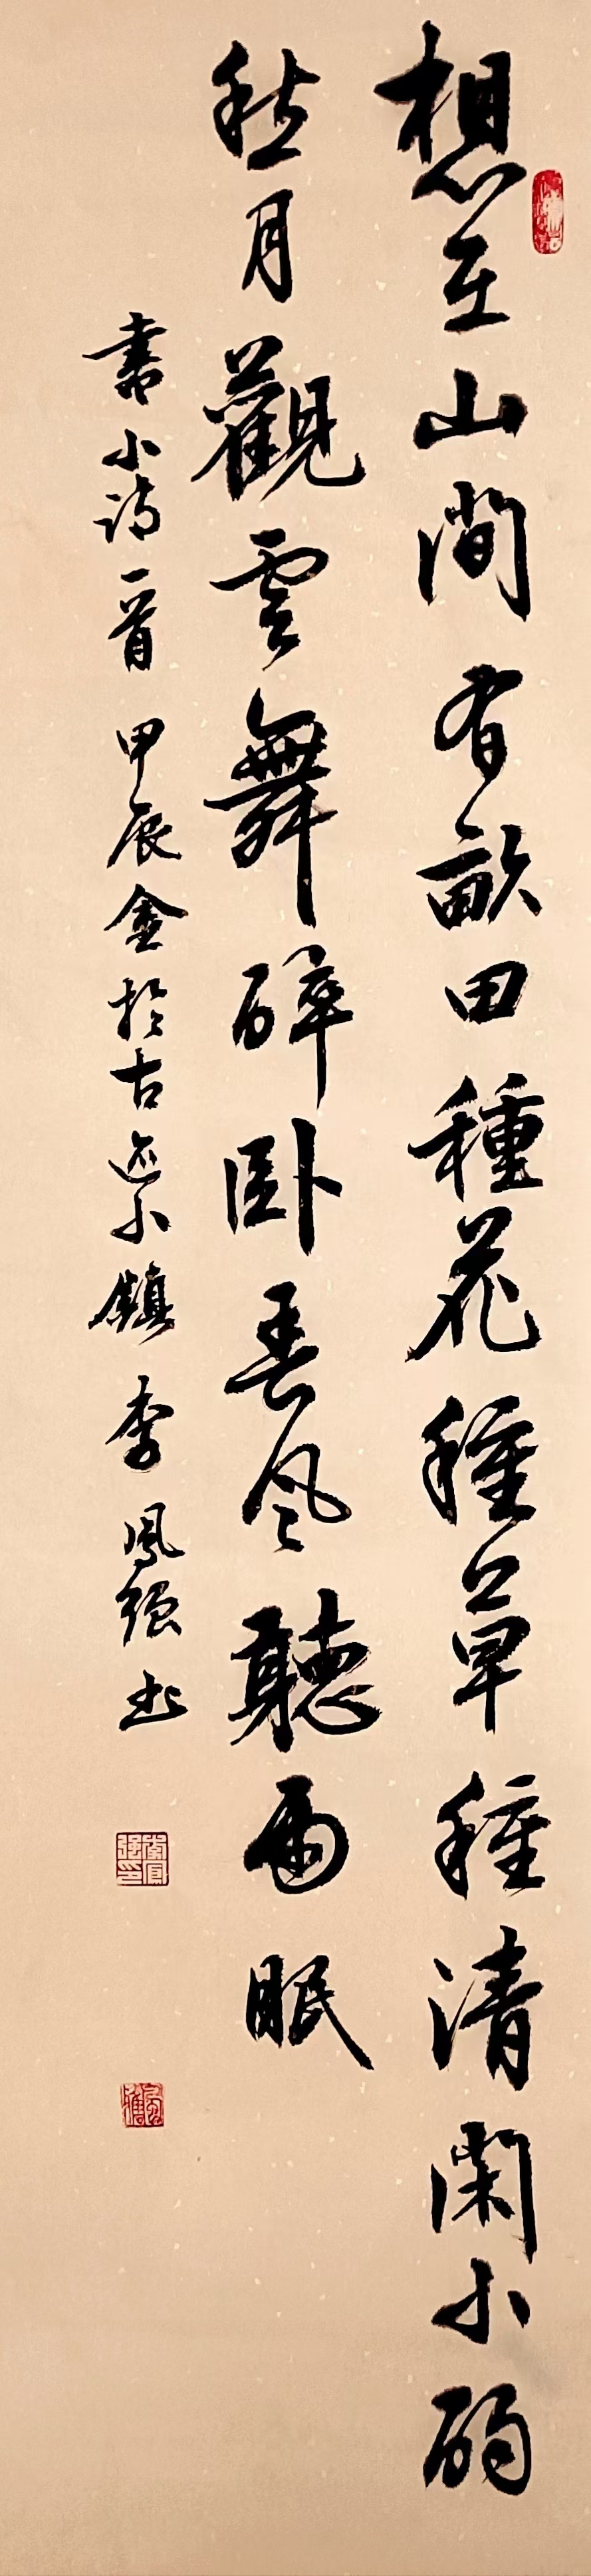 想在山間有畝田種花種草種清閑小酌
秋月觀雲舞醉卧春風聽雨眠
書小詩一首 甲辰金於古迹小鎮 李鳳強書
李鳳強印